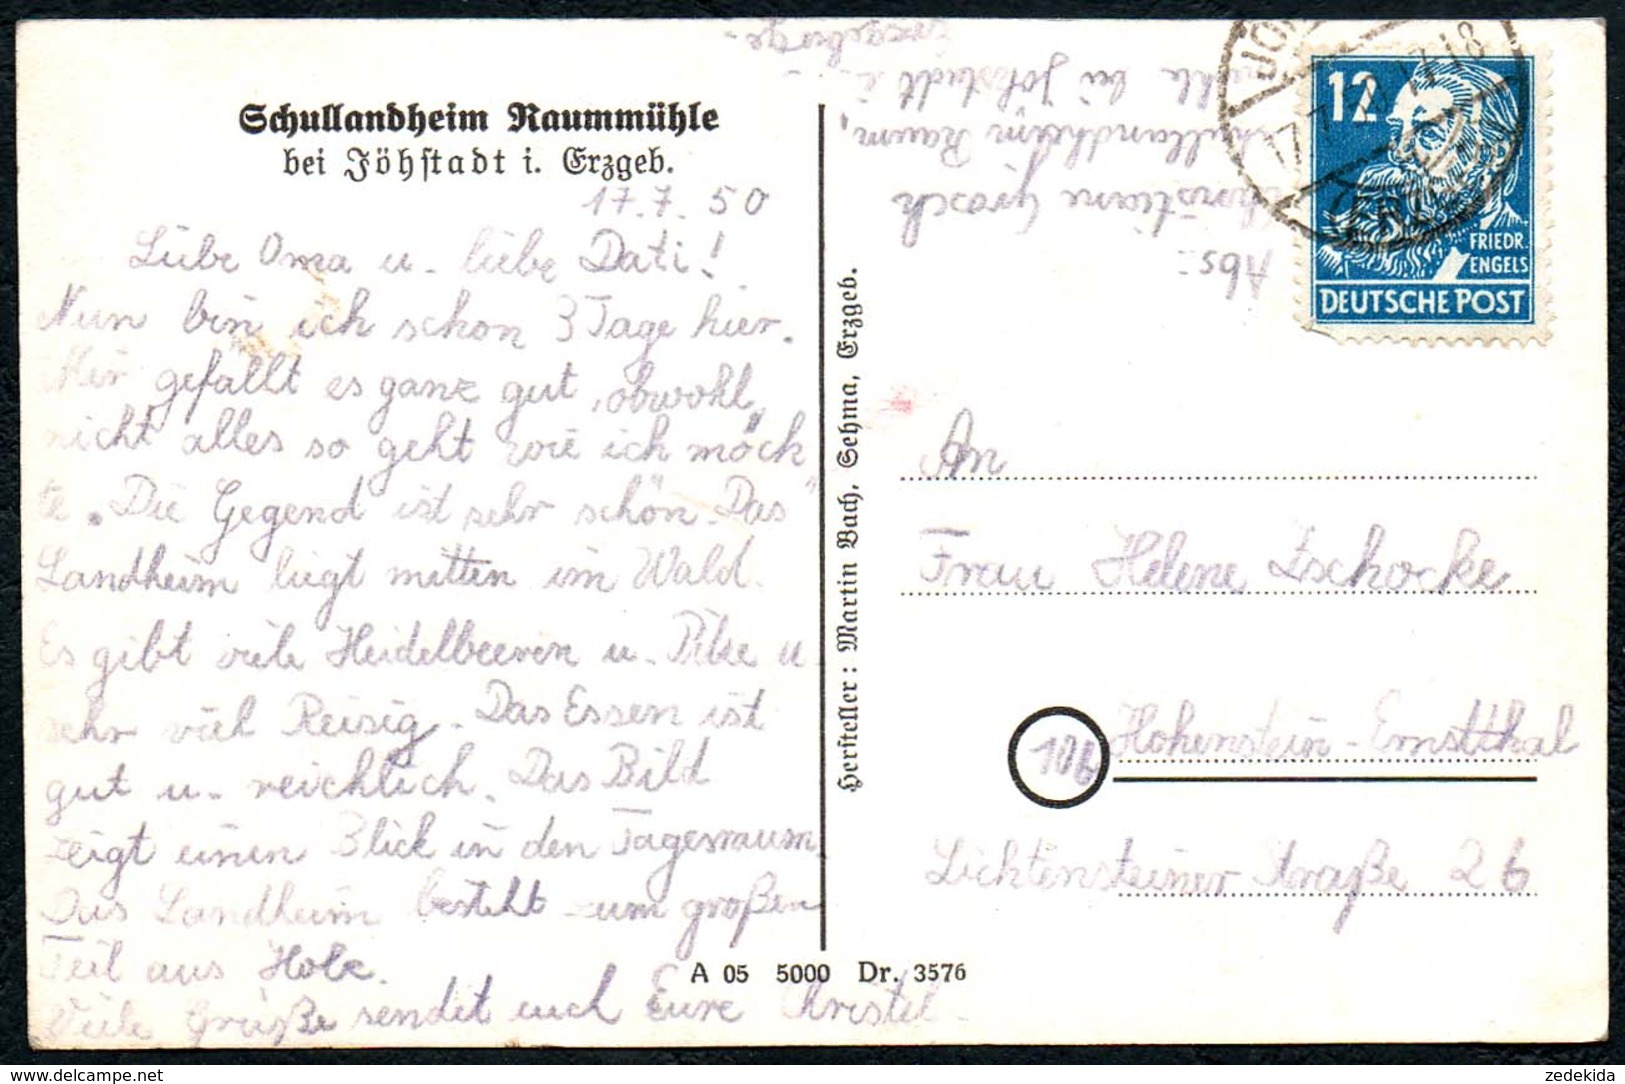 Schullandheim Raummühle
bei Jöhstadt i. Erzgeb.
17.7.50
Liebe Oma u. liebe Dati!
Nun bin ich schon 3 Tage hier.
Mir gefällt es ganz gut, obwohl
nicht alles so geht wie ich „möch
te". Die Gegend ist sehr schön. Das
Landheim liegt mitten im Wald.
Es gibt viele Heidelbeeren u. Pilze u.
sehr viel Reisig. Das Essen ist
gut u. reichlich. Das Bild
zeigt einen Blick in den Tagesraum.
Das Landheim besteht zum großen
Teil aus Holz.
Viele Grüße sendet euch Eure Christel.
Abs.:
Christiane Grosch
Schullandheim Raum,
mühle bei Jöhstadt i.
Erzgebirge.
Hersteller: Martin Bach, Sehma, Erzgeb.
A 05 5000 Dr. 3576
12
FRIEDR.
ENGELS
DEUTSCHE POST
An
Frau Helene Zschocke
10b Hohenstein-Ernstthal
Lichtensteiner Straße 26
zedekida